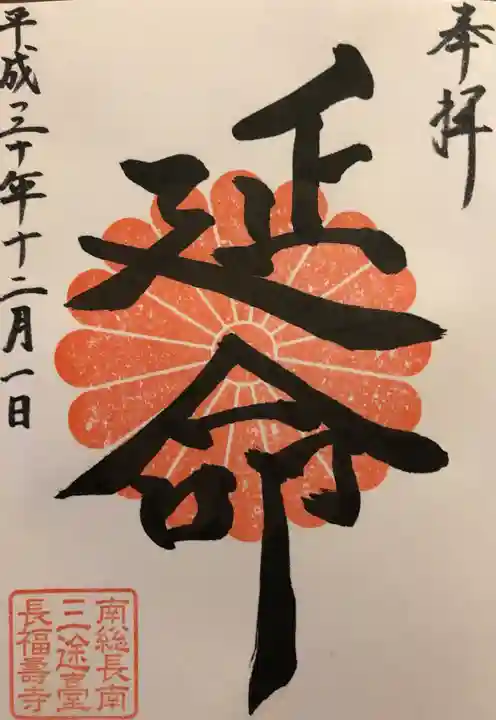 奉拝
延命
平成三十年十二月一日
南総長南
三途臺
長福壽寺